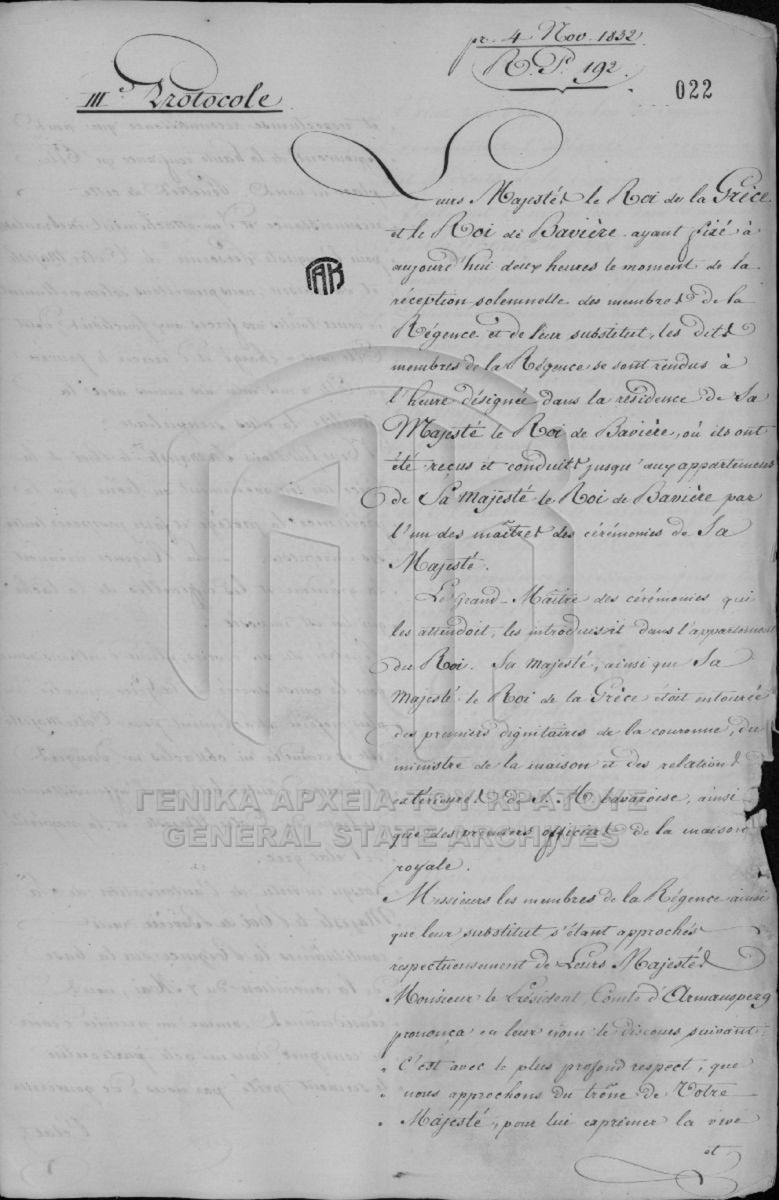 pr. 4 Nov. 1832.
R. P. 192.
022
III.e Protocole
Leurs Majestés le Roi de la Grèce
et le Roi de Bavière ayant fixé à
aujourd'hui deux heures le moment de la
réception solemnelle des membres de la
Régence et de leur substitut, les dits
membres de la Régence se sont rendus à
l'heure désignée dans la résidence de Sa
Majesté le Roi de Bavière, où ils ont
été reçus et conduits jusqu'aux appartemens
de Sa Majesté le Roi de Bavière par
l'un des maîtres des cérémonies de Sa
Majesté.
Le Grand-Maître des cérémonies qui
les attendoit, les introduisit dans l'appartement
du Roi. Sa Majesté, ainsi que Sa
Majesté le Roi de la Grèce étoit entourée
des premiers dignitaires de la couronne, du
ministre de la maison et des relations
extérieures de S. M. bavaroise, ainsi
que des premiers officiers de la maison
royale.
Messieurs les membres de la Régence ainsi
que leur substitut s'étant approchés
respectueusement de Leurs Majestés
Monsieur le Président Comte d'Armansperg
prononça en leur nom le discours suivant:
" C'est avec le plus profond respect, que
" nous approchons du trône de Votre
" Majesté, pour lui exprimer la vive
et
ΓΕΝΙΚΑ ΑΡΧΕΙΑ ΤΟΥ ΚΡΑΤΟΥΣ
GENERAL STATE ARCHIVES